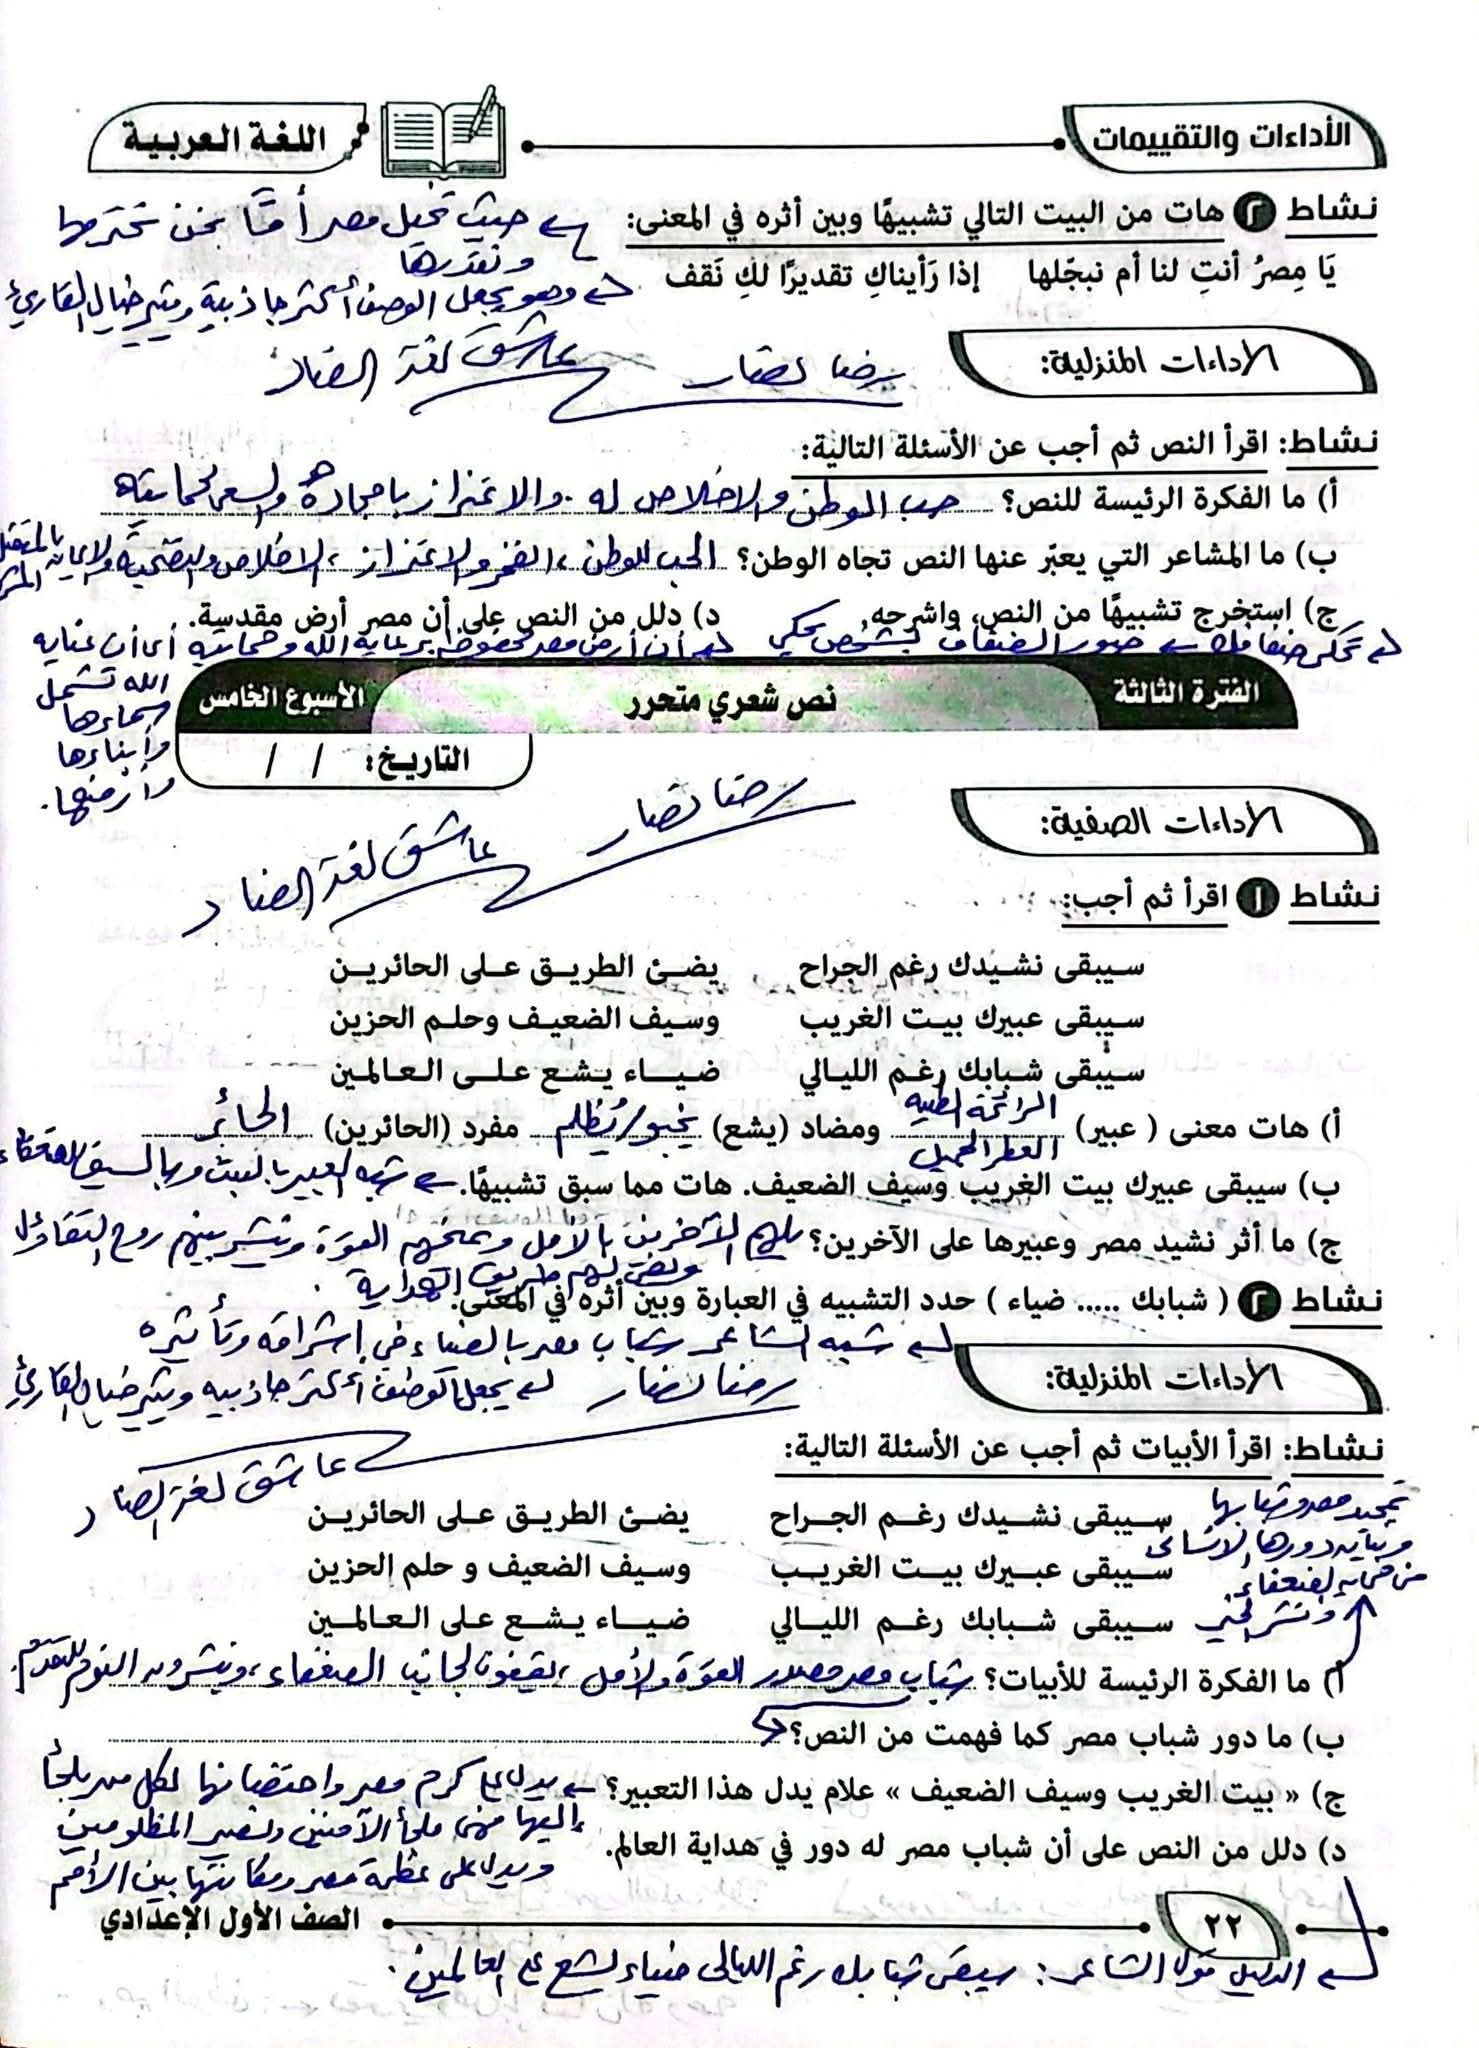 الأداءات والتقييمات
اللغة العربية
نشاط ٢ هات من البيت التالي تشبيهًا وبين أثره في المعنى:
حيث تخيل مصر أمًّا نحن نحترمها
ونقدرها
يَا مِصرُ أنتِ لنا أم نبجّلها إذا رَأيناكِ تقديرًا لكِ نَقف
وهو يجعل الوصف أكثر جاذبية ويثير خيال القارئ
الأداءات المنزلية:
رضا نصار عاشق لغة الضاد
نشاط: اقرأ النص ثم أجب عن الأسئلة التالية:
أ) ما الفكرة الرئيسة للنص؟ حب الوطن والإخلاص له والاعتزاز بأمجاده والسعي لحمايته
ب) ما المشاعر التي يعبّر عنها النص تجاه الوطن؟ الحب للوطن، الفخر والاعتزاز، الإخلاص والتضحية والإيمان بالمستقبل
ج) استخرج تشبيهًا من النص، واشرحه. د) دلل من النص على أن مصر أرض مقدسة.
تحكي ضفافك صور الضفاف بشخص يحكي
أن أرض مصر محفوظة برعاية الله وحمايته أي أن عناية
الله تشمل
سماءها
وأبناءها
وأرضها.
الفترة الثالثة
نص شعري متحرر
الأسبوع الخامس
التاريخ: / /
رضا نصار عاشق لغة الضاد
الأداءات الصفية:
نشاط ١ اقرأ ثم أجب:
سيبقى نشيدك رغم الجراح يضئ الطريق على الحائرين
سيبقى عبيرك بيت الغريب وسيف الضعيف وحلم الحزين
سيبقى شبابك رغم الليالي ضياء يشع على العالمين
أ) هات معنى ( عبير) الرائحة الطيبة ومضاد (يشع) يخبو / يُظلم مفرد (الحائرين) الحائر
العطر الجميل
ب) سيبقى عبيرك بيت الغريب وسيف الضعيف. هات مما سبق تشبيهًا. شبه العبير بالبيت وبالسيف للضعفاء
ج) ما أثر نشيد مصر وعبيرها على الآخرين؟ يلهم الآخرين بالأمل ويمنحهم القوة وينشر بينهم روح التفاؤل
ويضئ لهم طريق الهداية.
نشاط ٢ ( شبابك ..... ضياء ) حدد التشبيه في العبارة وبين أثره في المعنى.
شبه الشاعر شباب مصر بالضياء في إشراقه وتأثيره
يجعل الوصف أكثر جاذبية ويثير خيال القارئ
الأداءات المنزلية:
رضا نصار عاشق لغة الضاد
نشاط: اقرأ الأبيات ثم أجب عن الأسئلة التالية:
سيبقى نشيدك رغم الجراح يضئ الطريق على الحائرين
سيبقى عبيرك بيت الغريب وسيف الضعيف و حلم الحزين
سيبقى شبابك رغم الليالي ضياء يشع على العالمين
تمجيد مصر وشبابها
وبيان دورها الإنساني
في حماية الضعفاء
ونشر الخير
أ) ما الفكرة الرئيسة للأبيات؟
ب) ما دور شباب مصر كما فهمت من النص؟ شباب مصر مصدر القوة والأمل، يقفون لجانب الضعفاء، وينشرون النور للتقدم.
ج) « بيت الغريب وسيف الضعيف » علام يدل هذا التعبير؟ يدل على كرم مصر واحتضانها لكل من يلجأ
إليها فهي ملجأ الآمنين ونصير المظلومين
ويدل على عظمة مصر ومكانتها بين الأمم
د) دلل من النص على أن شباب مصر له دور في هداية العالم.
٢٢
الصف الأول الإعدادي
الدليل قول الشاعر: سيبقى شبابك رغم الليالي ضياء يشع على العالمين.